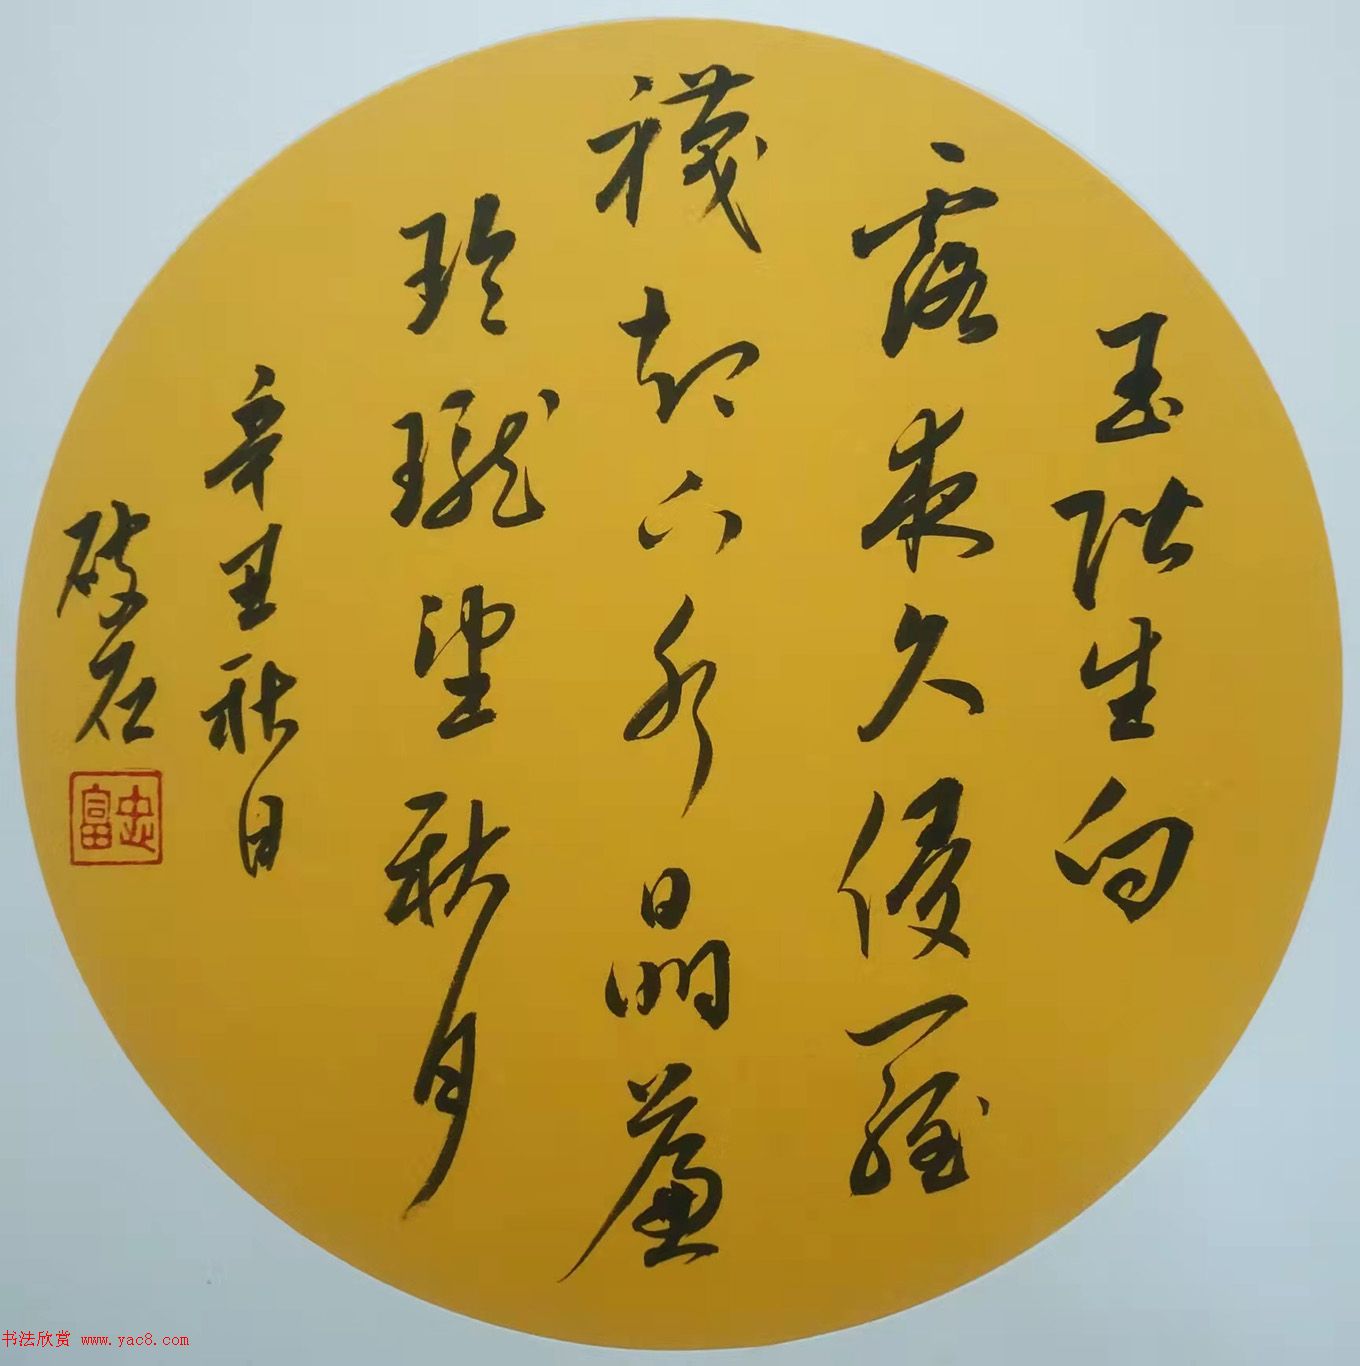 玉階生白
露夜久侵羅
襪却下水晶簾
玲瓏望秋月
辛丑秋日
破石
忠富
书法欣赏 www.yac8.com